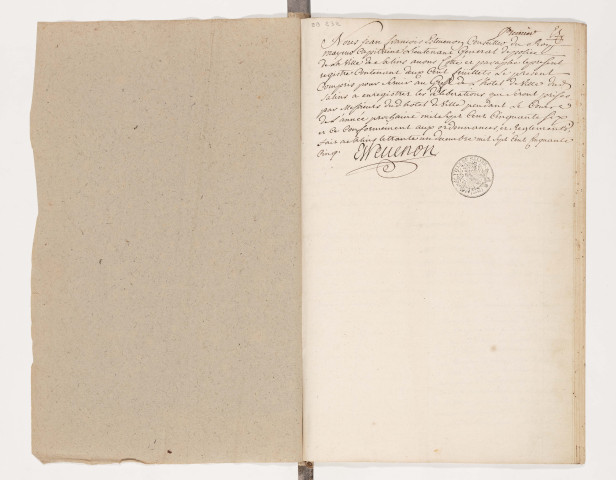 BB 232
premier
Nous Jean François Eleuenon Conseiller du Roy
mayeur Capitaine & Lieutenant General de police
de la Ville de Salins auons Cotté et paraphé le present
registre Contenant deux Cent feuillets Le present
Compris pour seruir au Greffe de L'hotel de Ville de
Salins a enregistrer les deliberations qui seront prises
par Messieurs de L'hotel de Ville pendant le Cours
de L'année prochaine mil sept Cent Cinquante six
et ce Conformement aux ordonnances et Reglements
fait a Salins le trante un decembre mil sept Cent Cinquante
Cinq